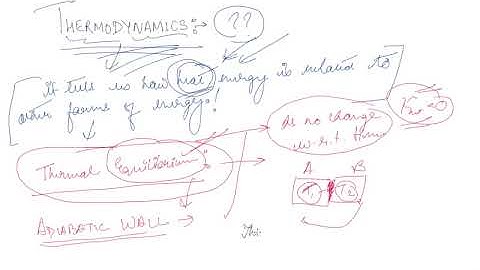 THERMODYNAMICS :→ ??
It tells us how heat energy is related to
other forms of energy!
Thermal Equilibrium :→ as no change
w.r.t. time
A B
T₁ T₂
ADIABATIC WALL →
This